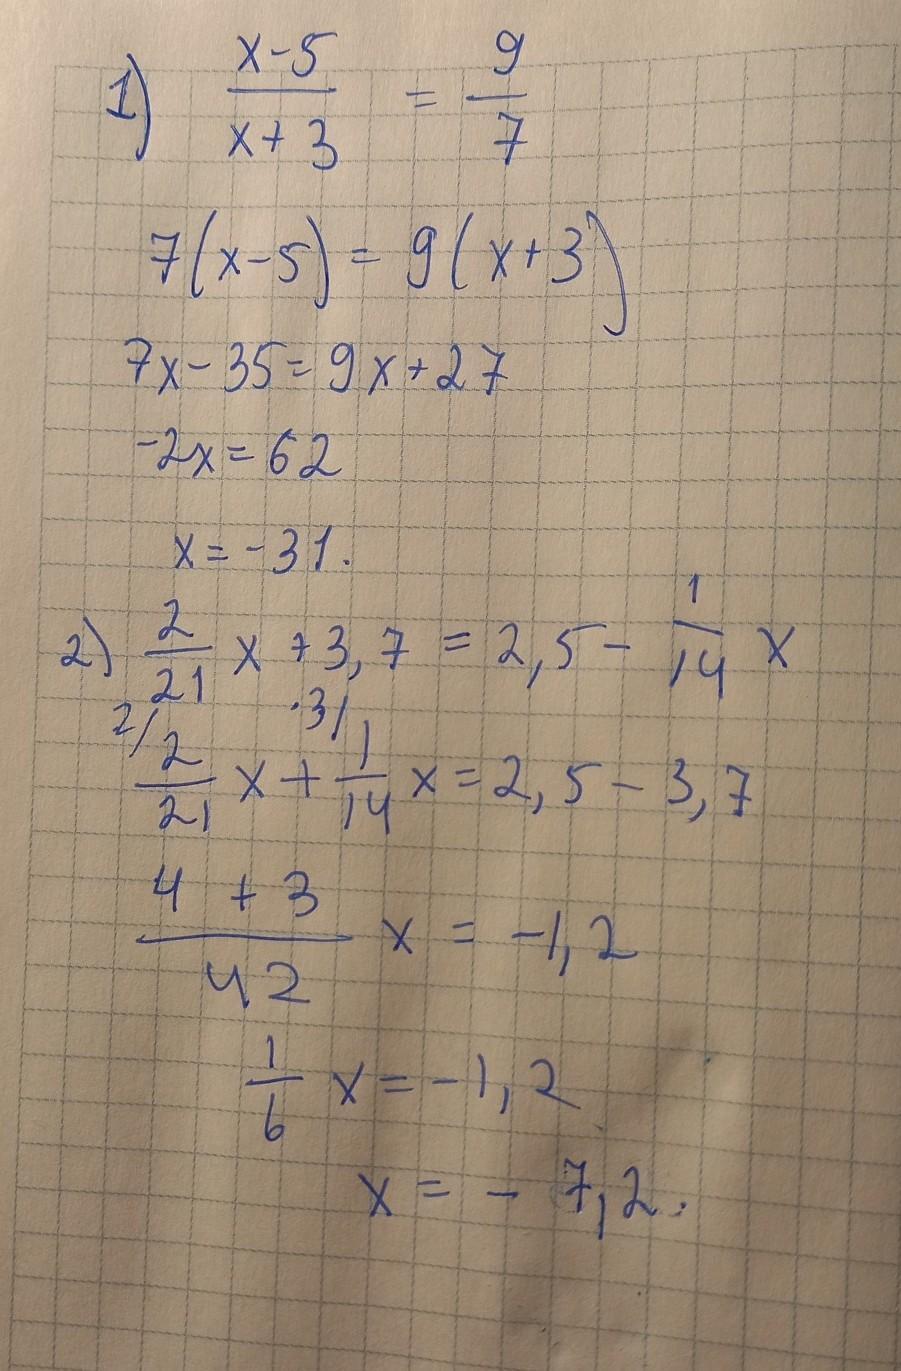 1) (x-5)/(x+3) = 9/7
7(x-5) = 9(x+3)
7x-35=9x+27
-2x=62
x=-31.
2) 2/21 x +3,7 = 2,5 - 1/14 x
2/ ·3/
2/21 x + 1/14 x = 2,5 - 3,7
(4 + 3)/42 x = -1,2
1/6 x = -1,2
x = - 7,2.